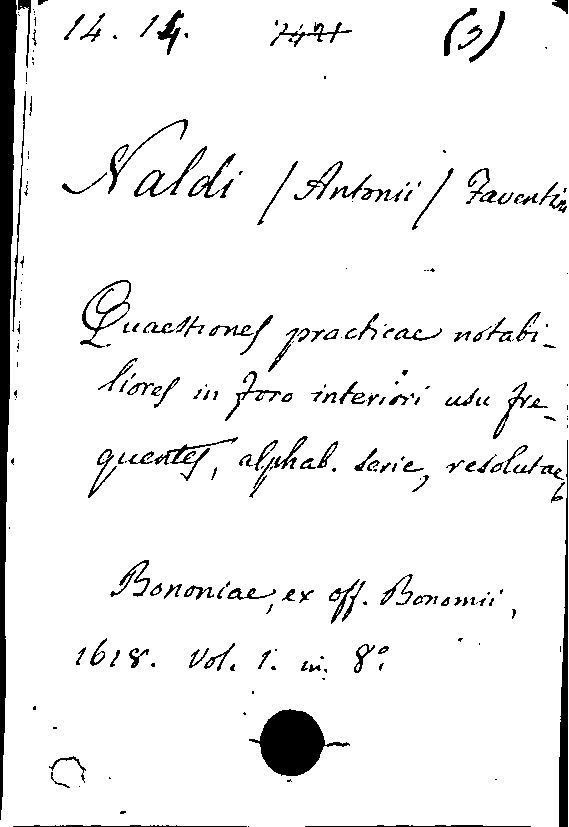 14. 14. 7421 (3)
Naldi / Antonii / Faventin
Quaestiones practicae notabi-
liores in foro interiori usu fre-
quentes, alphab. serie, resolutae
Bononiae, ex off. Bonomii,
1618. Vol. 1. in 8º.